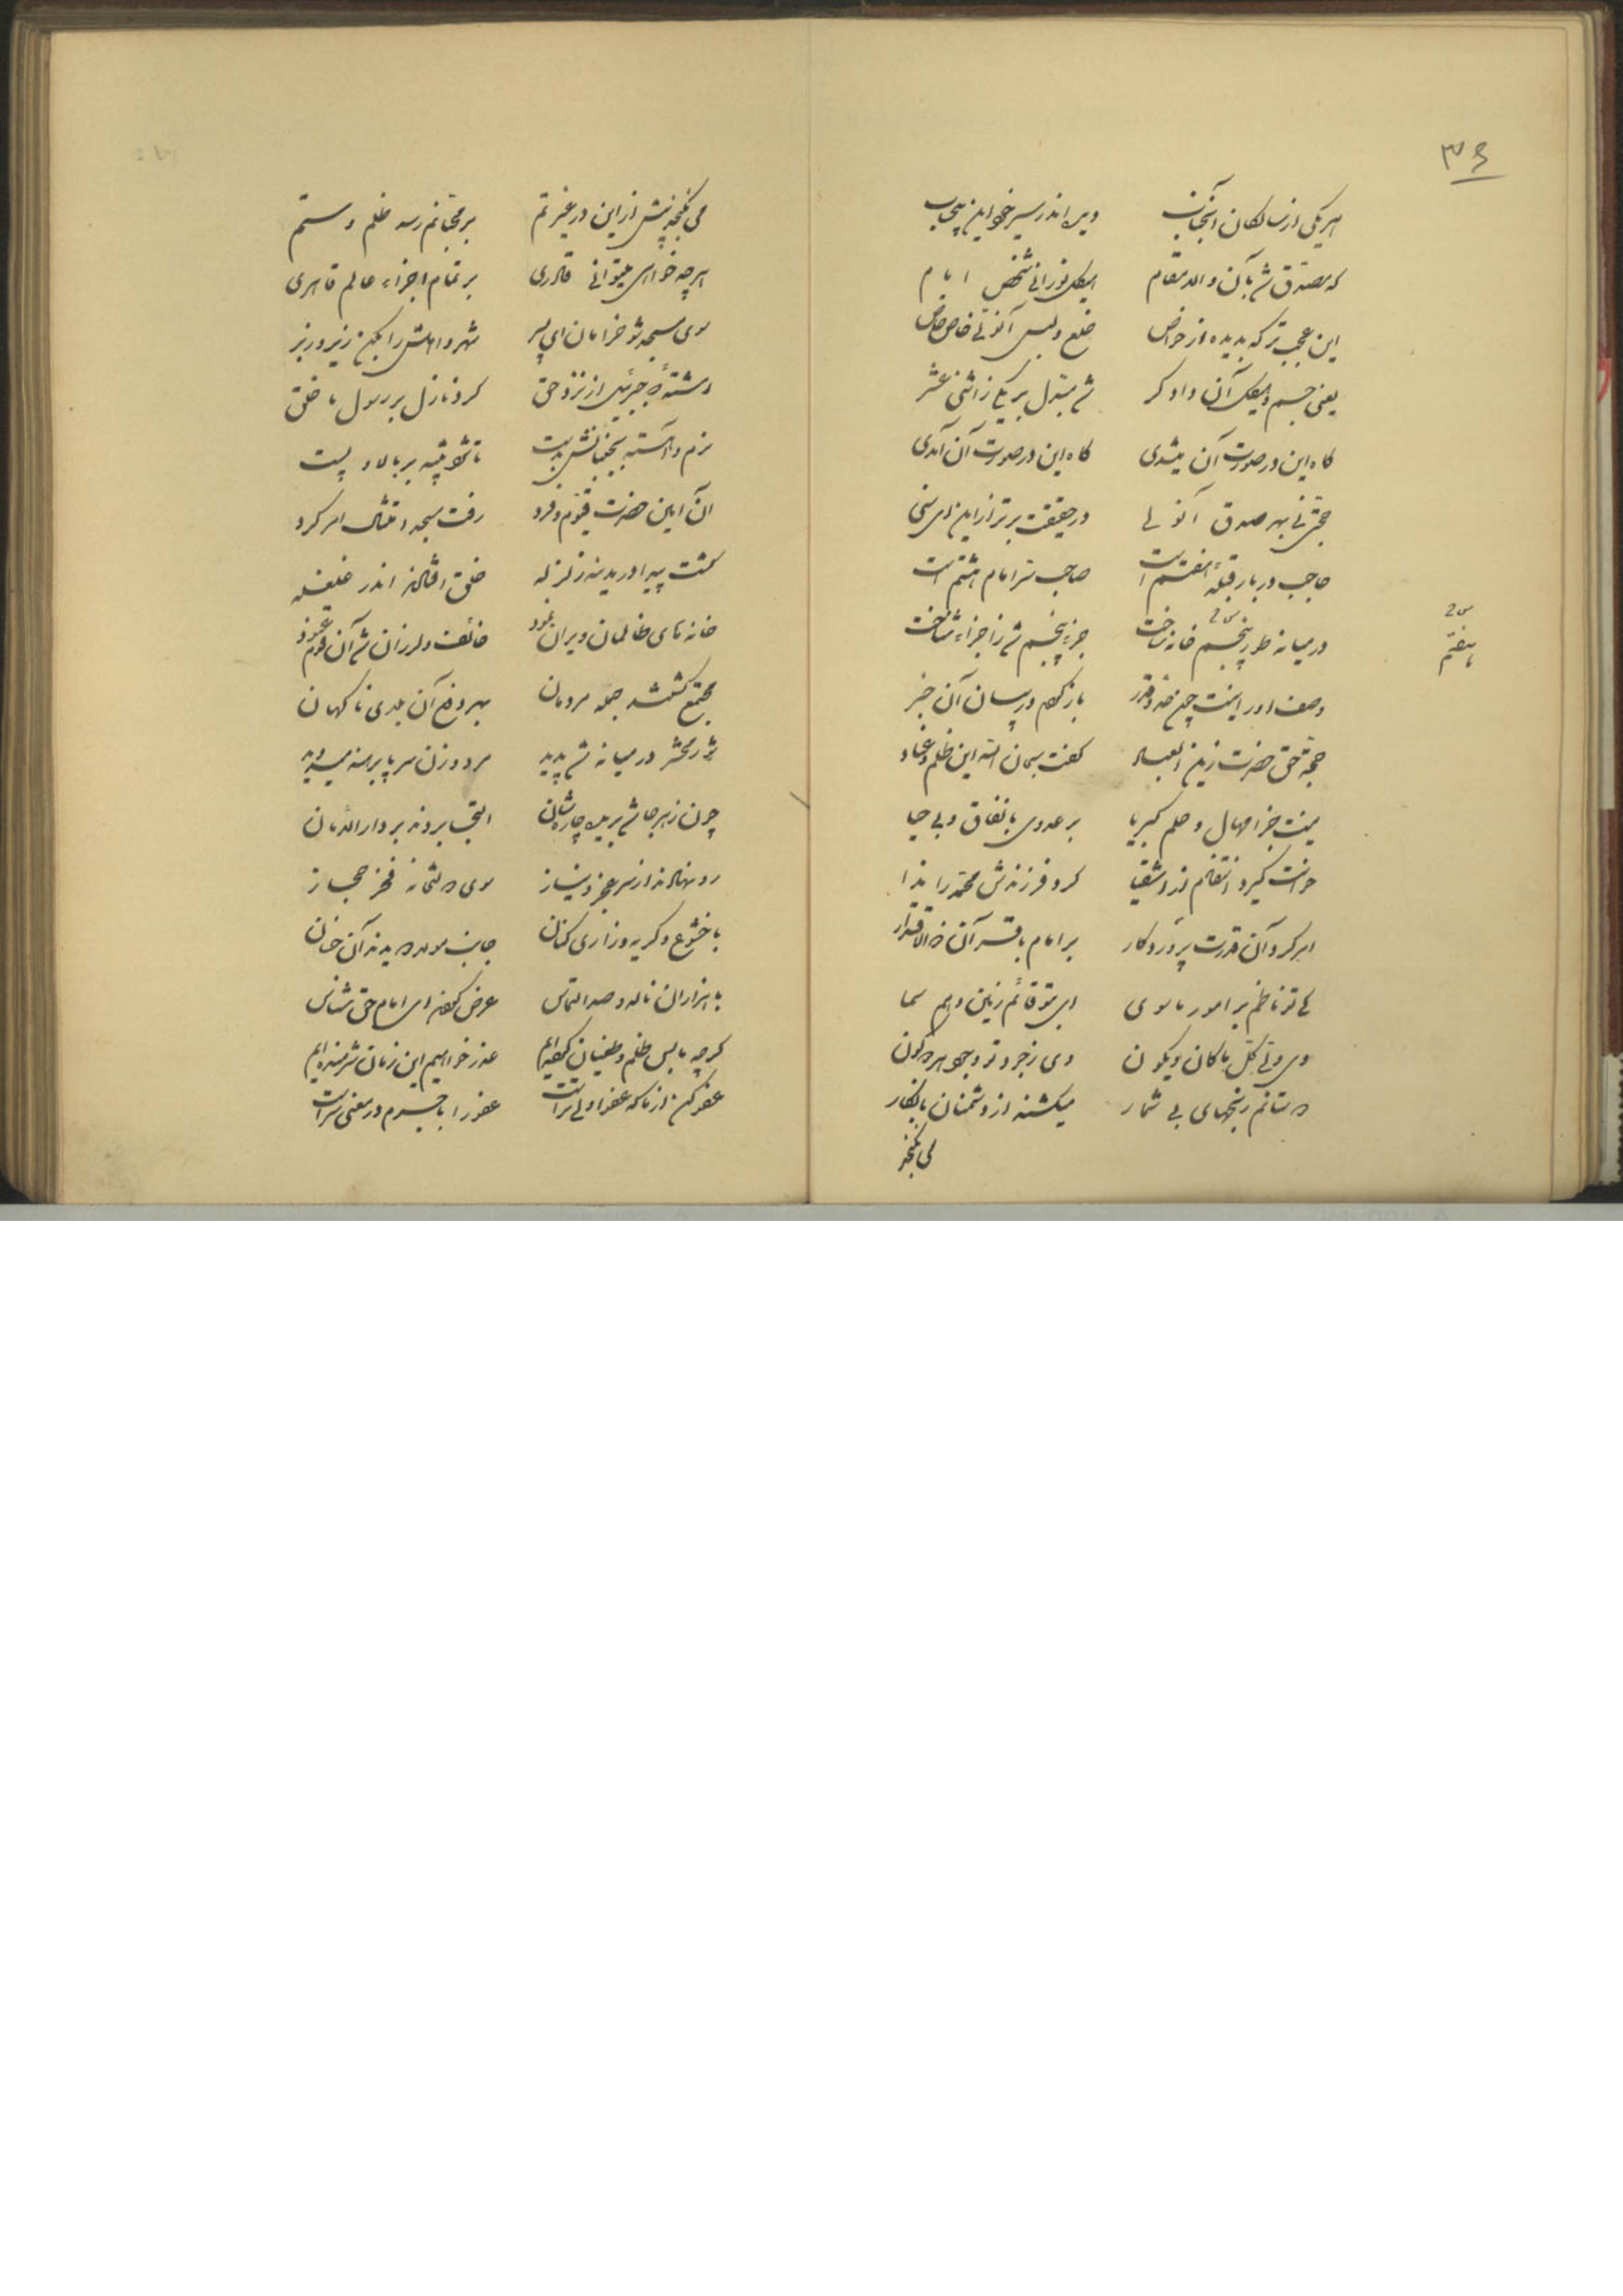 ۳۶
هر یکی از سالکان آنجناب دید اندر سیر خود این بیحجاب
که مصدق شد بآن والا مقام هیکل نورانی شخص امام
این عجب‌تر که بدیده از خواص خلع و لبس آنولی خاص خاص
یعنی جسم و هیکل آن دادگر شد مبدل بر یکی ز اثنی عشر
گاه این در صورت آن میشدی گاه این در صورت آن آمدی
حجتی نی بهر صدق آنولی در حقیقت برتر از این ای سنی
حاجب دربار قبله هفتم است صاحب سر امام هشتم است
در میانه طور پنجم خانه ساخت جزء پنجم شد ز اجزاء شناخت
هفتم
وصف او را نیست چون حد و قدر باز گویم در بیان آن خبر
حجة حق حضرت زین العباد گفت سبحان الله این ظلم و عناد
نیست جز امهال و حلم کبریا بر عدوی با نفاق و بی حیا
خواست گیرد انتقام از اشقیا کرد فرزندش محمد را ندا
امر کرد آن قدرت پروردگار بر امام باقر آن ذوالاقتدار
کای تو ناظم بر امور ماسوی ای بتو قائم زمین و هم سما
وی ولی کل ما کان و یکون
دوستانم رنجهای بی شمار میکشند از دشمنان نابکار
می نگنجد
می نگنجد بیش از این در غیرتم بر محبانم رسد ظلم و ستم
هر چه خواهی میتوانی قادری بر تمام اجزاء عالم قاهری
سوی مسجد شو خرامان ای پسر شهر و اهلش را بکن زیر و زبر
رشتهٔ جبریل از نزد حق کرد نازل بر رسول ما خلق
نرم و آهسته بجنبانش بدست تا شود یثرب بر بالا و پست
آن امین حضرت قیوم فرد رفت مسجد امتثال امر کرد
گشت پیدا در مدینه زلزله خلق افتادند اندر غلغله
خانه‌های ظالمان ویران نمود خائف و لرزان شد آن قوم عنود
مجتمع گشتند جمله مردمان بهر دفع آن بلای ناگهان
شور محشر در میانه شد پدید مرد و زن سر پا برهنه میدوید
چون ز هر جا شد بریده چاره‌شان التجا بردند بر دار الامان
رو نهادند از سر عجز و نیاز سوی دولتخانه فخر حجاز
با خشوع و گریه و زاری کنان جانب مولا دویدند آن خسان
با هزاران ناله و صد التماس عرض کردند ای امام حق شناس
گرچه ما بس ظلم و طغیان کرده‌ایم عذر خواهیم این زمان شرمنده‌ایم
عفو کن از ما که عفو اولی‌تر است عفو را با جرم در معنی سر است